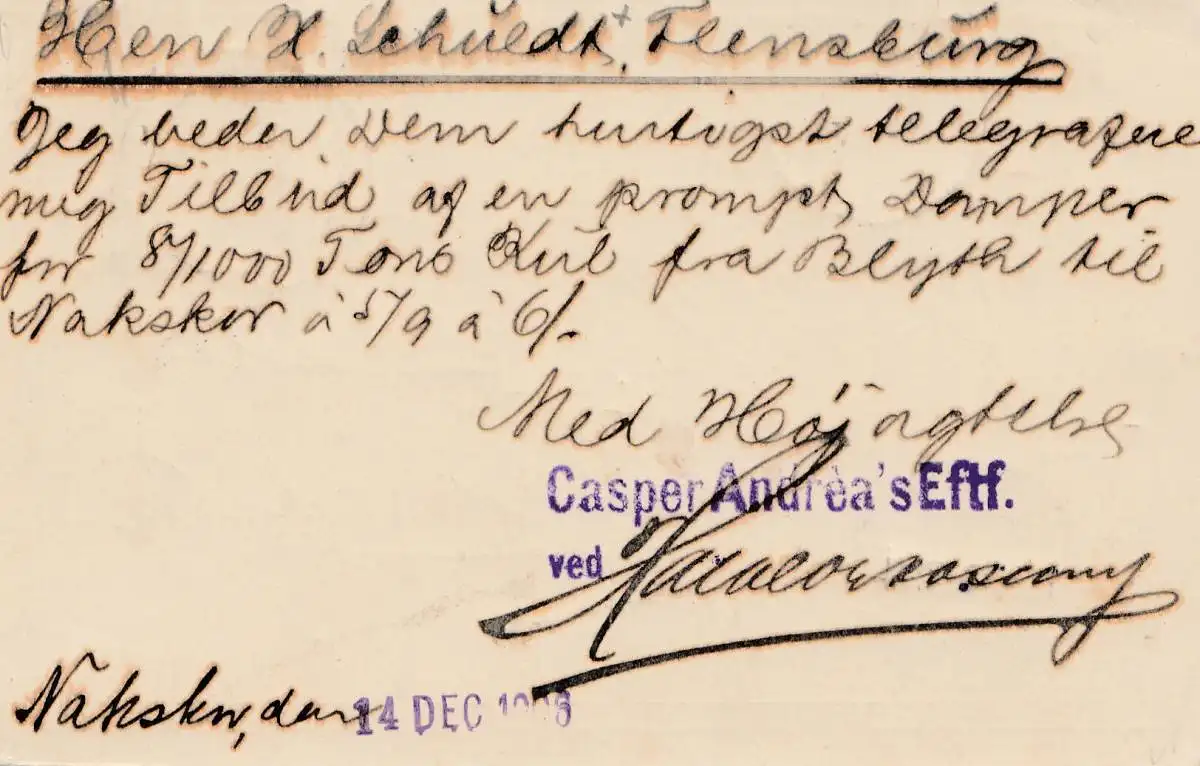 Herr H. Schuldt, Flensburg
Jeg beder Dem hurtigst telegrafere
mig Tilbud af en prompt Damper
for 8/1000 Tons Kul fra Blyth til
Nakskov à 5/9 à 6/-
Med Højagtelse
Casper Andrèa's Eftf.
ved
Nakskov, den 14 DEC